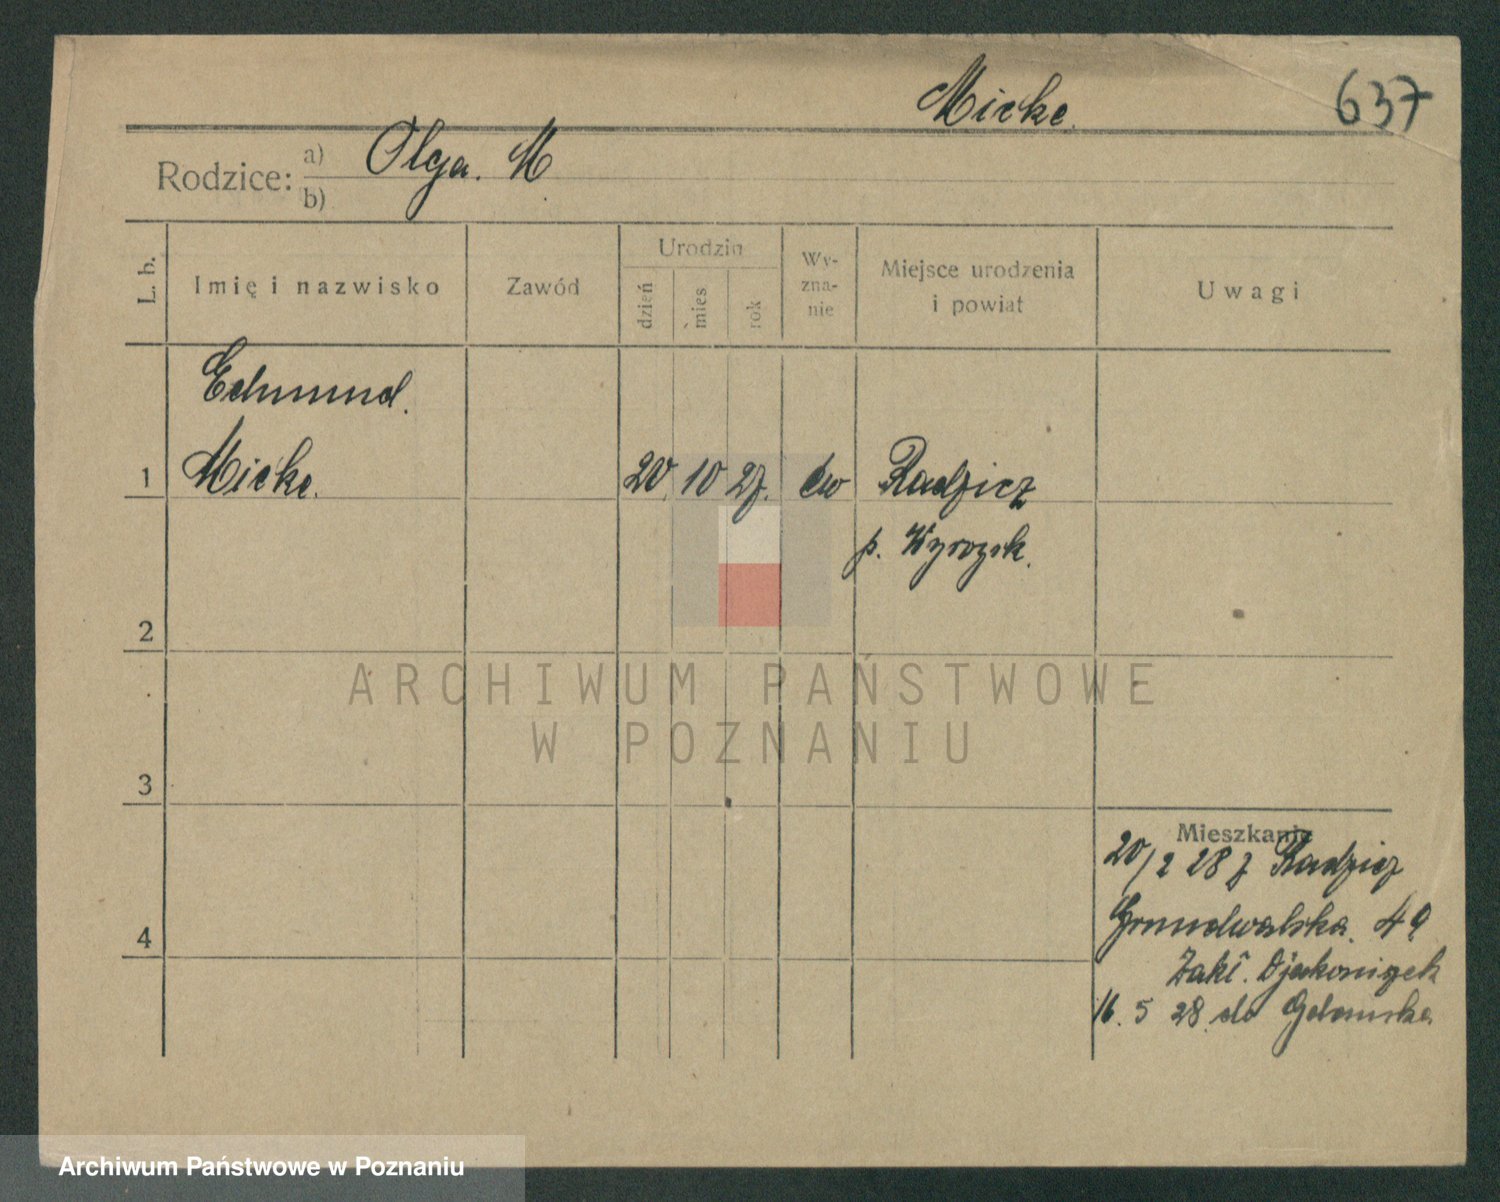 Micke.
637
Rodzice:
a) Olga. M
b)
L. b.
Imię i nazwisko
Zawód
Urodzin
dzień
mies
rok
Wy-
zna-
nie
Miejsce urodzenia
i powiat
Uwagi
Edmund.
1 Micke. 20 10 27. ew Radzicz
p. Wyrzysk.
2
3
4
Mieszkanie
20/2 28 z Radzicz
Grundwalska. 49
Zakł. Djakonizek
16. 5 28. do Gdańska
ARCHIWUM PAŃSTWOWE
W POZNANIU
Archiwum Państwowe w Poznaniu